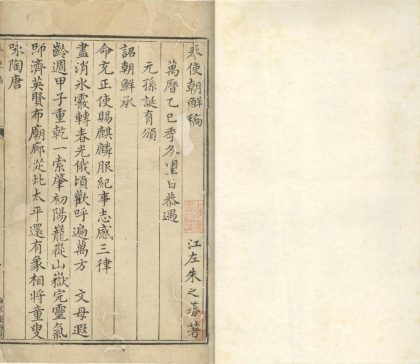 奉使朝鮮稿
江左朱之蕃著
萬曆乙巳季冬望日恭遇
元孫誕育頒
詔朝鮮承
命充正使賜麒麟服紀事志感三律
盡消氷霰轉春光俄頃歡呼遍萬方 文母遐
齡週甲子重乾一索肇初陽巃嵸山嶽完靈氣
即濟英賢布廟廊從此太平還有象相將童叟
咏陶唐